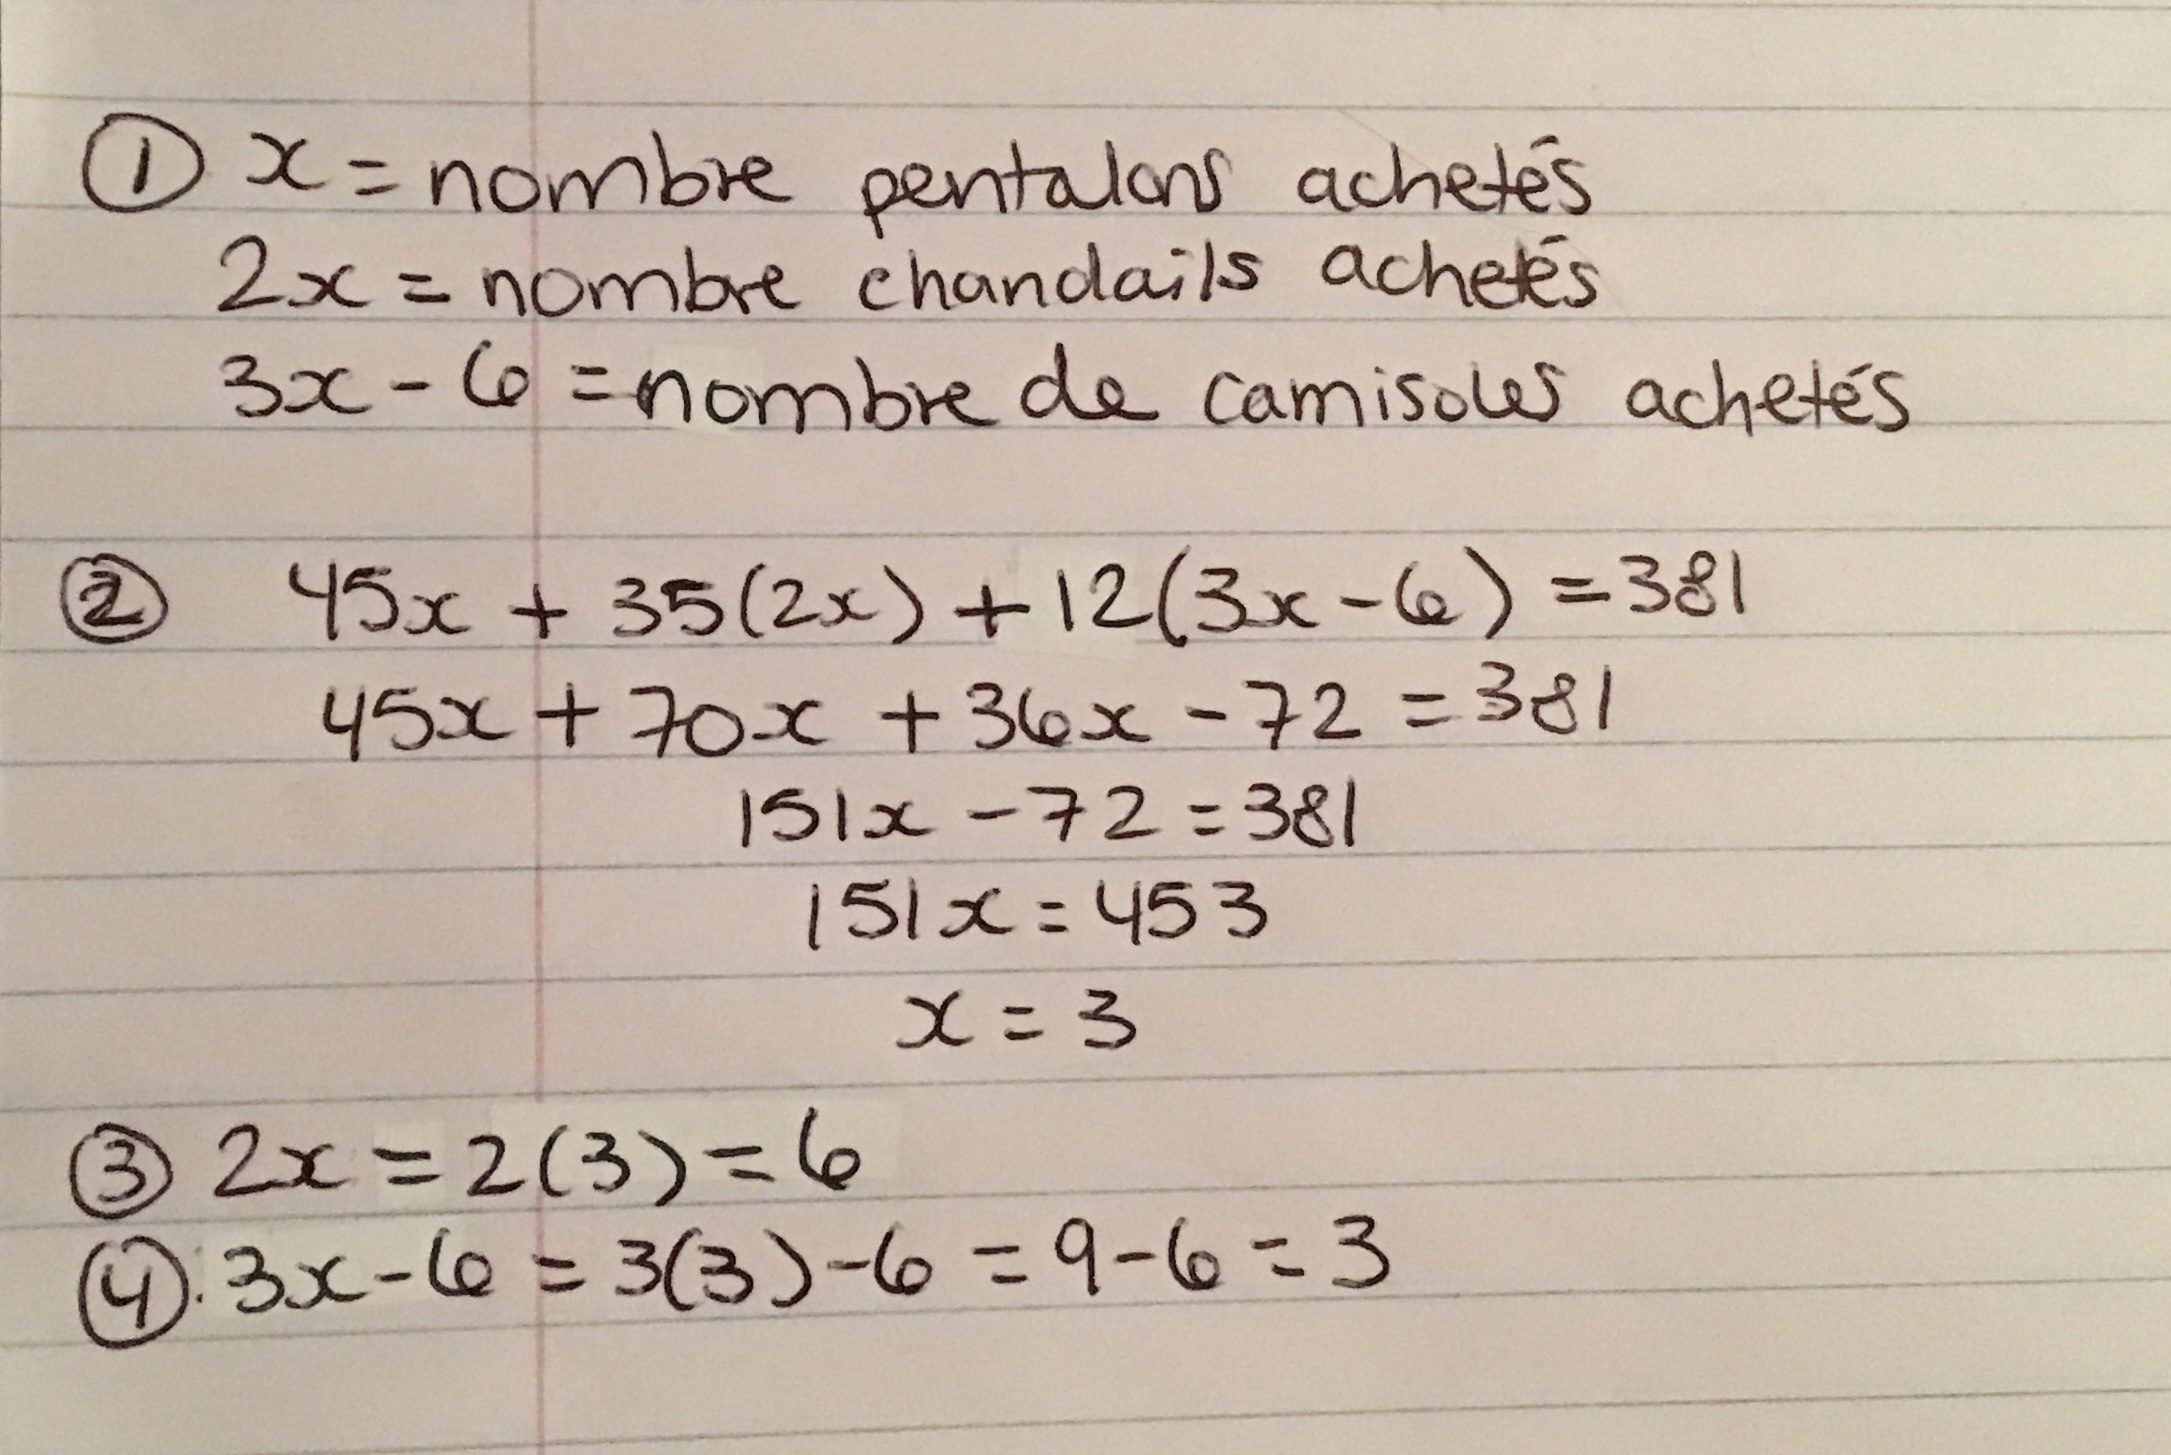 ① x = nombre pentalons achetés
2x = nombre chandails achetés
3x - 6 = nombre de camisoles achetés
② 45x + 35(2x) + 12(3x - 6) = 381
45x + 70x + 36x - 72 = 381
151x - 72 = 381
151x = 453
x = 3
③ 2x = 2(3) = 6
④. 3x - 6 = 3(3) - 6 = 9 - 6 = 3